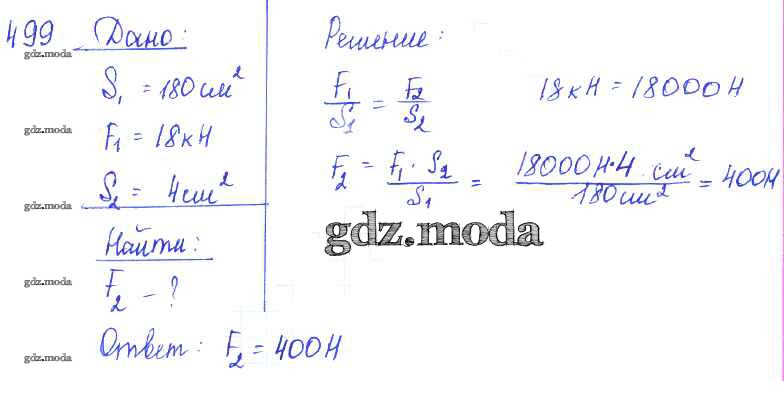 499 Дано:
gdz.moda
S₁ = 180 см²
gdz.moda
F₁ = 18 кН
S₂ = 4 см²
gdz.moda
Найти:
gdz.moda
F₂ - ?
Ответ: F₂ = 400 Н
gdz.moda
Решение:
F₁/S₁ = F₂/S₂
18 кН = 18000 Н
F₂ = F₁ · S₂/S₁ = 18000 Н · 4 см²/180 см² = 400 Н
gdz.moda